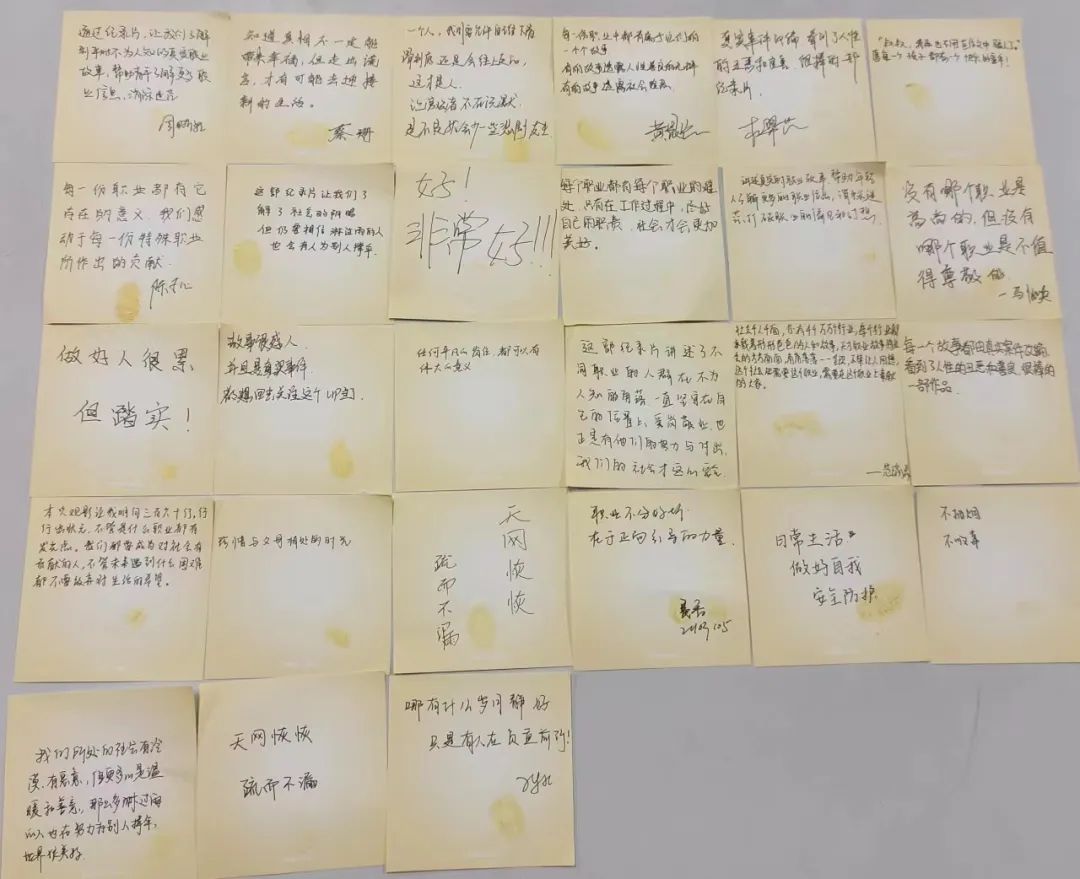 通过纪录片,让我们了解
到平时不为人知的真实职业
故事,帮助青年了解更多职
业信息,消除迷茫
知道真相不一定能
带来幸福,但走出谎
言,才有可能去迎接
新的生活。
蔡珊
一个人,我们要允许自己往下看
滑到底还是会往上走的,
这才是人
让沉没者不在沉默
是不是就会少一些悲剧发生
每一份职业中都有属于他们的
一个个故事
有的故事透露人性是良的光辉
有的故事透露社会险恶
真实事件改编 看到了人性
的丑恶和善美 很棒的一部
纪录片
愿每一个孩子都有一个快乐的童年!
每一份职业都有它
存在的意义,我们感
动于每一份特殊职业
所作出的贡献
这部纪录片让我们了
解了社会的阴暗
但仍要相信淋过雨的人
也会有人为别人撑伞
好!
非常好!!!
每个职业都有每个职业的难
处,只有在工作过程中,做好
自己的职责,社会才会更加
美好。
讲述真实的职业故事,帮助年轻
人了解更多的职业信息,消除迷
茫,打破职业的偏见和幻想
没有哪个职业是
高尚的,但没有
哪个职业是不值
得尊敬的
做好人很累
但踏实!
故事很感人
并且是真实事件
都想回去关注这个UP主了
任何平凡的岗位,都可以有
伟大的意义
这部纪录片讲述了不
同职业的人群在不为
人知的角落一直坚守在自
己的位置上,爱岗敬业,也
正是有他们的努力与付出,
我们的社会才这么安定
每一个故事都由真实案件改编
看到了人性的丑恶和善良 很棒的
一部作品
本次观影让我明白三百六十行,行
行出状元,不管是什么职业都有
发光点。我们都要成为对社会有
贡献的人,不管未来遇到什么困难
都不要放弃对生活的希望。
珍惜与父母相处的时光
天网恢恢
疏而不漏
职业不分好坏
在于正向引导的力量
日常生活
做好自我
安全防护
不抽烟
不吸毒
我们所处的社会有冷
漠,有恶意,但更多的是温
暖和善意,那么多淋过雨
的人也在努力为别人撑伞,
世界很美好
天网恢恢
疏而不漏
哪有什么岁月静好
只是有人在负重前行!